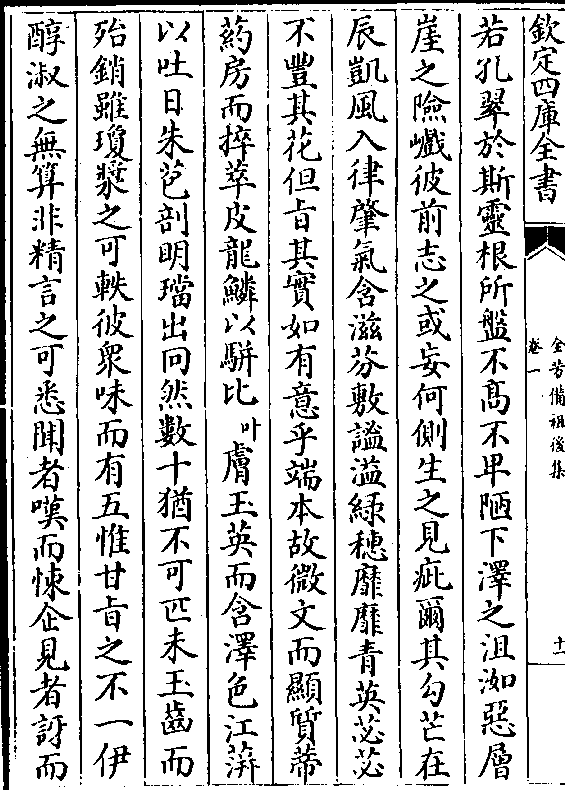 欽定四庫全書
全芳備祖後集
卷一
十一
若孔翠於斯靈根所盤不高不卑陋下澤之沮洳惡層
崖之險巇彼前志之或妄何側生之見疵爾其勾芒在
辰凱風入律肇氣含滋芬敷謐溢緑穗靡靡青英苾苾
不豐其花但旨其實如有意乎端本故微文而顯質蒂
葯房而捽萃皮龍鱗以駢比叶膚玉英而含澤色江蓱
以吐日朱苞剖明璫出冋然數十猶不可匹未玉齒而
殆銷雖瓊漿之可軼彼衆味而有五惟甘旨之不一伊
醇淑之無算非精言之可悉聞者嘆而悚企見者訝而